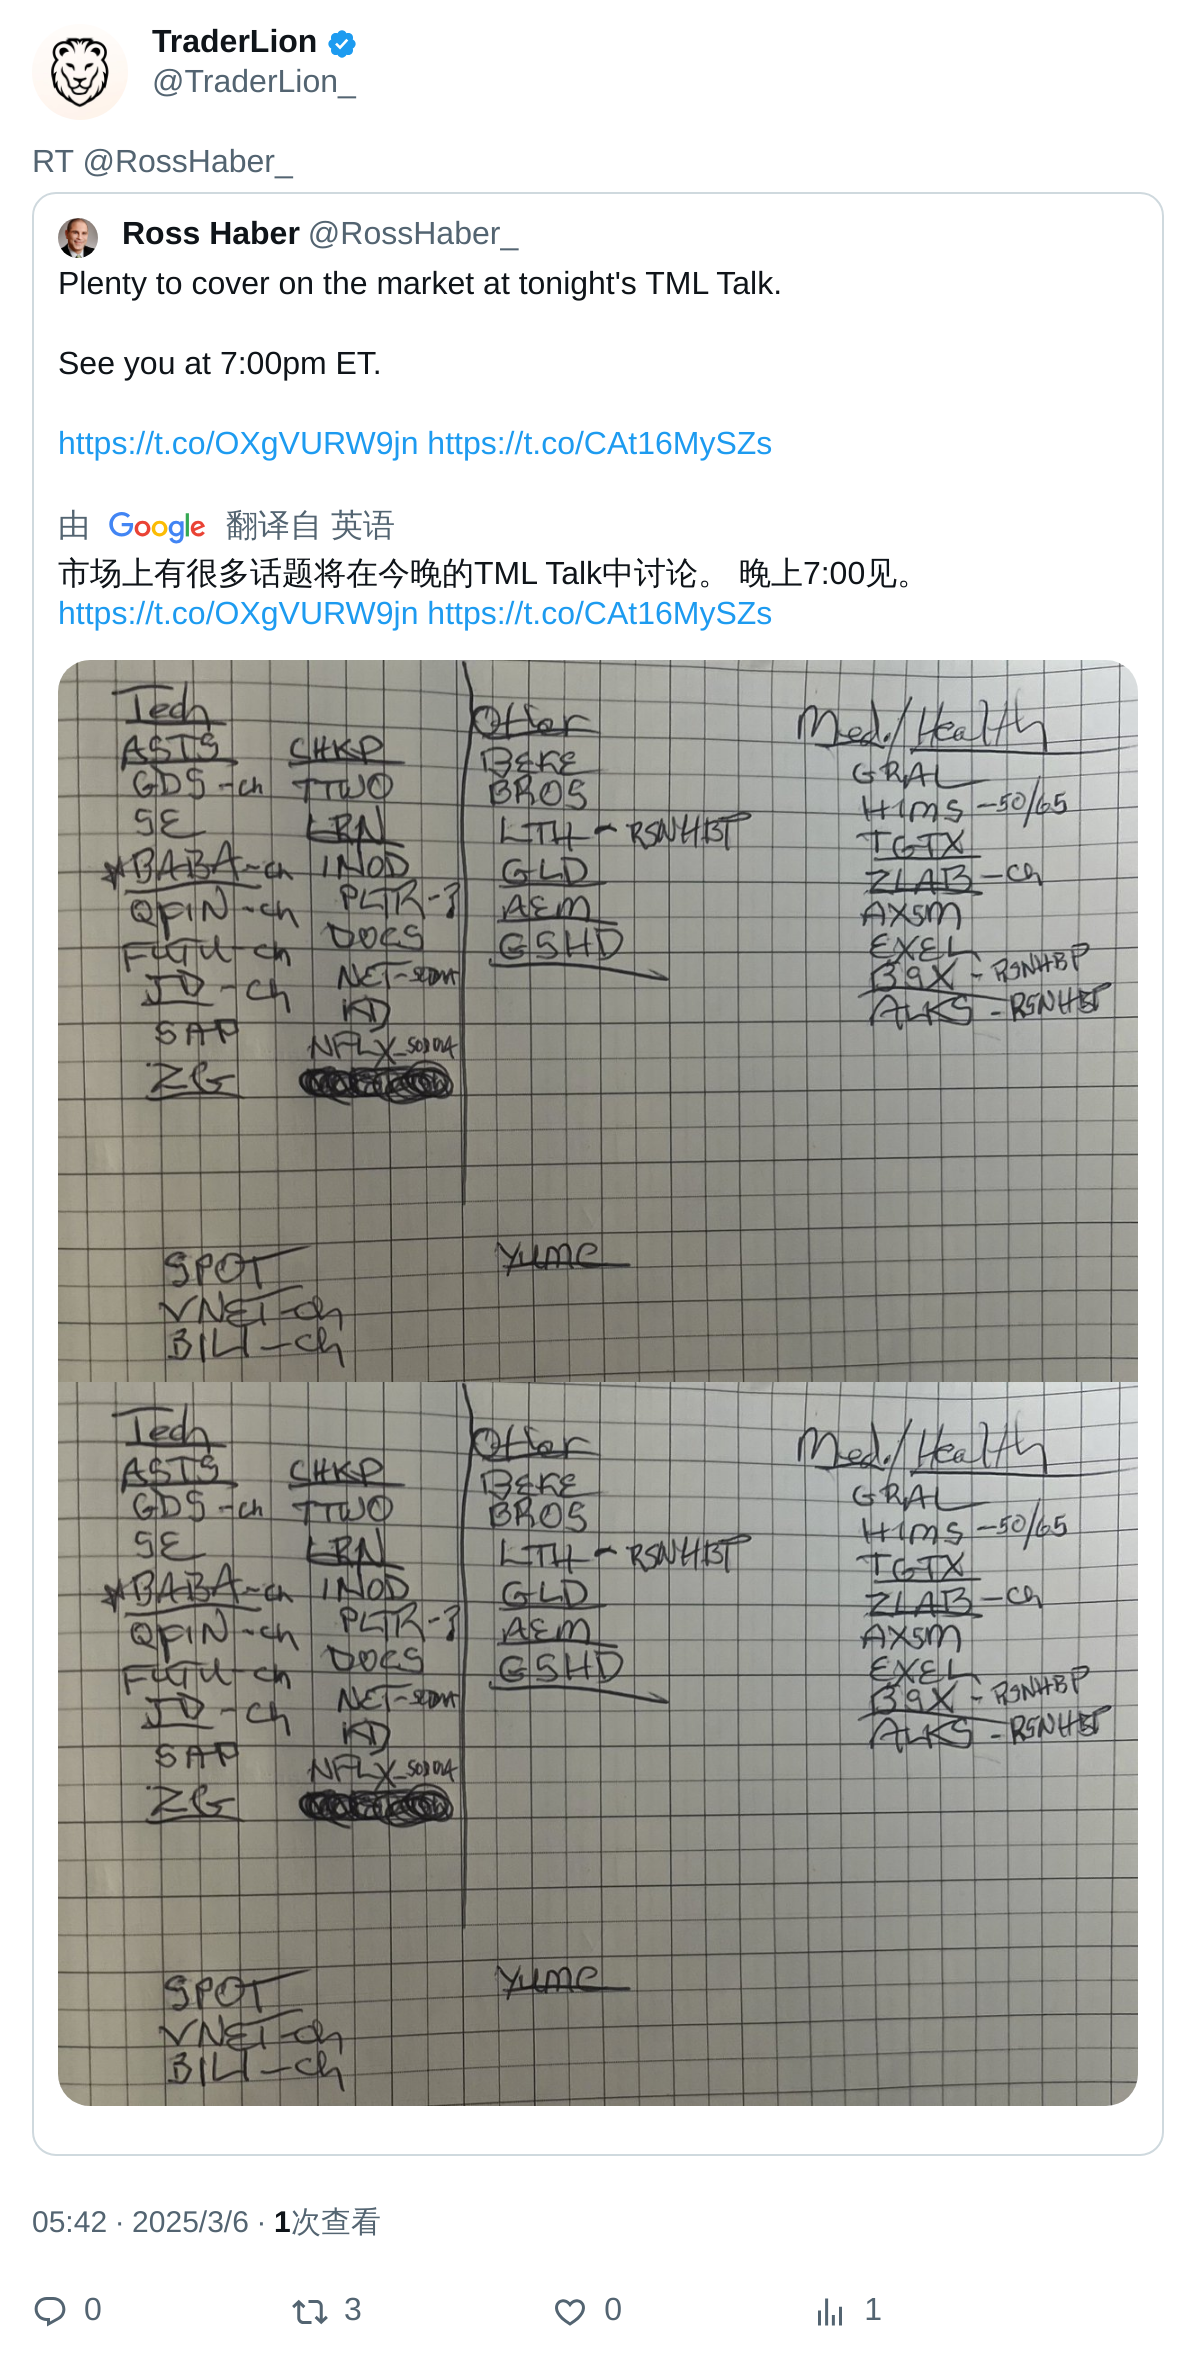 TraderLion
@TraderLion_
RT @RossHaber_
Ross Haber @RossHaber_
Plenty to cover on the market at tonight's TML Talk.
See you at 7:00pm ET.
https://t.co/OXgVURW9jn https://t.co/CAt16MySZs
由 Google 翻译自 英语
市场上有很多话题将在今晚的TML Talk中讨论。 晚上7:00见。
https://t.co/OXgVURW9jn https://t.co/CAt16MySZs
Tech
ASTS
GDS -ch
SE
*BABA-ch
QFIN -ch
FUTU -ch
JD -ch
SAP
ZG
CHKP
TTWO
LRN
INOD
PLTR-?
DOCS
NET-50DMA
KD
NFLX-50DMA
Other
BEKE
BROS
LTH - RSNHBP
GLD
AEM
GSHD
Med./Health
GRAL
HIMS -50/65
TGTX
ZLAB -ch
AXSM
EXEL
- RSNHBP
ALKS - RSNHBP
SPOT
VNET-ch
BILI -ch
YUMC
Tech
ASTS
GDS -ch
SE
*BABA-ch
QFIN -ch
FUTU -ch
JD -ch
SAP
ZG
CHKP
TTWO
LRN
INOD
PLTR-?
DOCS
NET-50DMA
KD
NFLX-50DMA
Other
BEKE
BROS
LTH - RSNHBP
GLD
AEM
GSHD
Med./Health
GRAL
HIMS -50/65
TGTX
ZLAB -ch
AXSM
EXEL
- RSNHBP
ALKS - RSNHBP
SPOT
VNET-ch
BILI -ch
YUMC
05:42 · 2025/3/6 · 1次查看
0
3
0
1